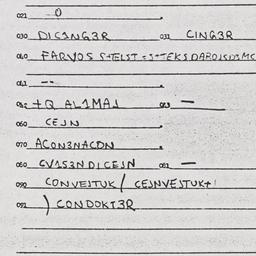 021 0
030 DIC1NG3R 031 CING3R
040 FARVOS S+ELST =S+EKSDAROJSD3MC
041 --
042 +Q AL1MAJ 043 —
060 CEJN
070 ACON3NACDN
080 CV1S3NDICEJN 081 —
090 CONVESTUK / CEJNVESTUK+1
091 ) CONDOKT3R